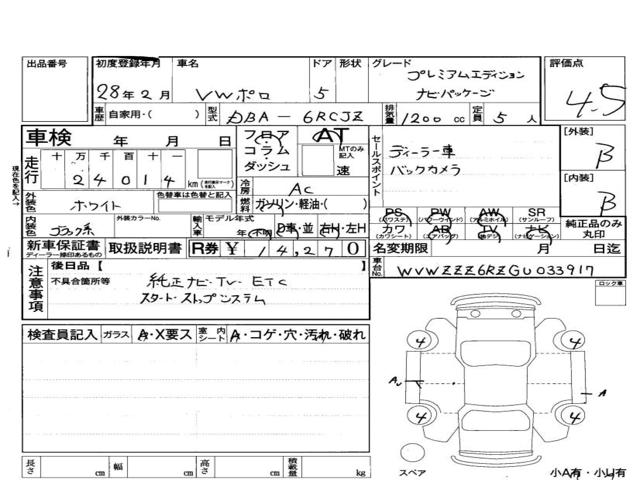 出品番号 初度登録年月 車名 ドア 形状 グレード 評価点
28年2月 VWポロ 5 プレミアムエディション ナビパッケージ 4.5
車歴 自家用・( ) 型式 DBA-6RCJZ 排気量 1200cc 定員 5人
車検 年 月 日 フロア コラム ダッシュ AT MTのみ記入 速
セールスポイント ディーラー車 バックカメラ
[外装] B
走行 十万千百十一 24014 km
冷房 AC
[内装] B
現在色を記入→
外装色 ホワイト 色替車は色替と記入 燃料 ガソリン・軽油・( )
PS (パワステ) PW (パワーウィンド) AW (アルミホイル) SR (サンルーフ) 純正品のみ丸印
内装色 ブラック系 外装カラーNo. 輸入車 モデル年式 年(不明) D車・並 右H・左H
カワ (カワシート) AB (エアバッグ) TV (純テレ) ナビ (ナビゲーション)
新車保証書 ディーラー捺印あるもの 取扱説明書 R券 ¥14,270 名変期限 月 日迄
注意事項 後日品【 】
車台No. WVWZZZ6RZGU033917
不具合箇所等 純正ナビ・TV・ETC
スタート・ストップシステム
ロック車
検査員記入 ガラス A・X要ス 室内シート A・コゲ・穴・汚れ・破れ
4 4
A
4 4
長さ cm 幅 cm 高さ cm 積載量 kg
スペア 小A有・小U有